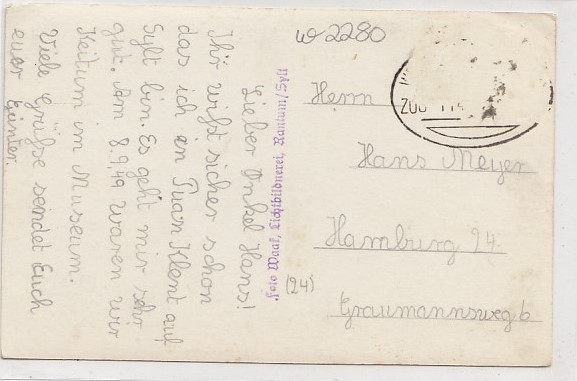 Lieber Onkel Hans!
Ihr wißt sicher schon
das ich an Puan Klent auf
Sylt bin. Es geht mir sehr
gut. Am 8.9.49 waren wir
Keitum im Museum.
Viele Grüße sendet Euch
euer Günter.
Foto Waaf, Lichtbildnerei, Rantum/Sylt
(24)
w 2280
Herrn
Hans Meyer
Hamburg 24.
Graumannsweg 6